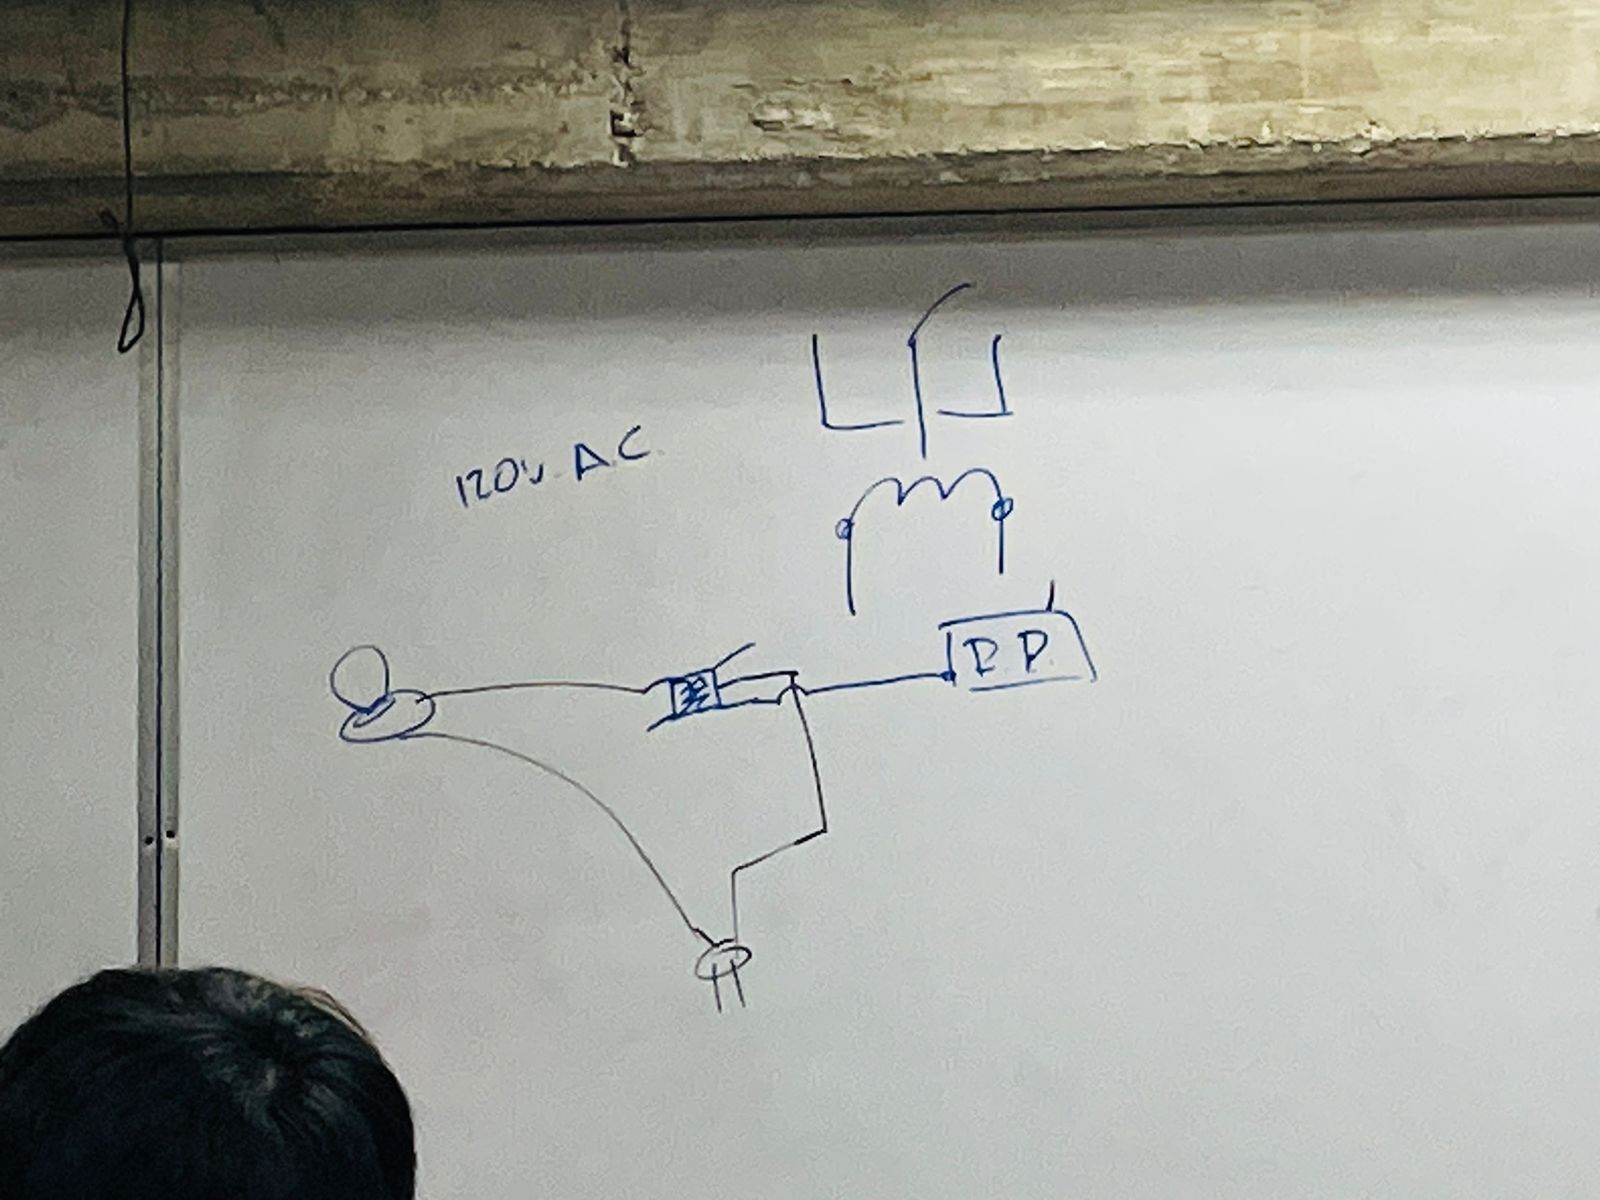 120v. A.C.
P.P.